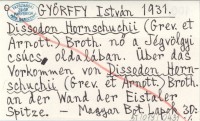 GYÖRFFY István 1931.
Dissodon Hornschuchii (Grev. et
Arnott.) Broth. nő a Jégvölgyi
csúcs oldalában. Über das
Vorkommen von Dissodon Horn-
schuchii (Grev. et Arnott.) Broth.
an der Wand der Eistaler
Spitze. - Magyar Bot. Lapok 30.